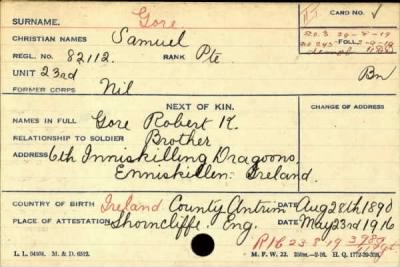 SURNAME. Gore CARD NO. √
CHRISTIAN NAMES Samuel
FOLL.
REGL. NO. 82112. RANK Pte
UNIT 23rd Bn
FORMER CORPS Nil
NEXT OF KIN. CHANGE OF ADDRESS
NAMES IN FULL Gore Robert K.
RELATIONSHIP TO SOLDIER Brother
ADDRESS 6th Inniskilling Dragoons,
Enniskillen Ireland.
COUNTRY OF BIRTH Ireland County Antrim DATE Aug 28th 1890
PLACE OF ATTESTATION Shorncliffe, Eng. DATE May 23rd 1916
R16 23 8 19
L. L. M. & D. 6512. M. F. W. 22. H. Q. 1772-39-339.